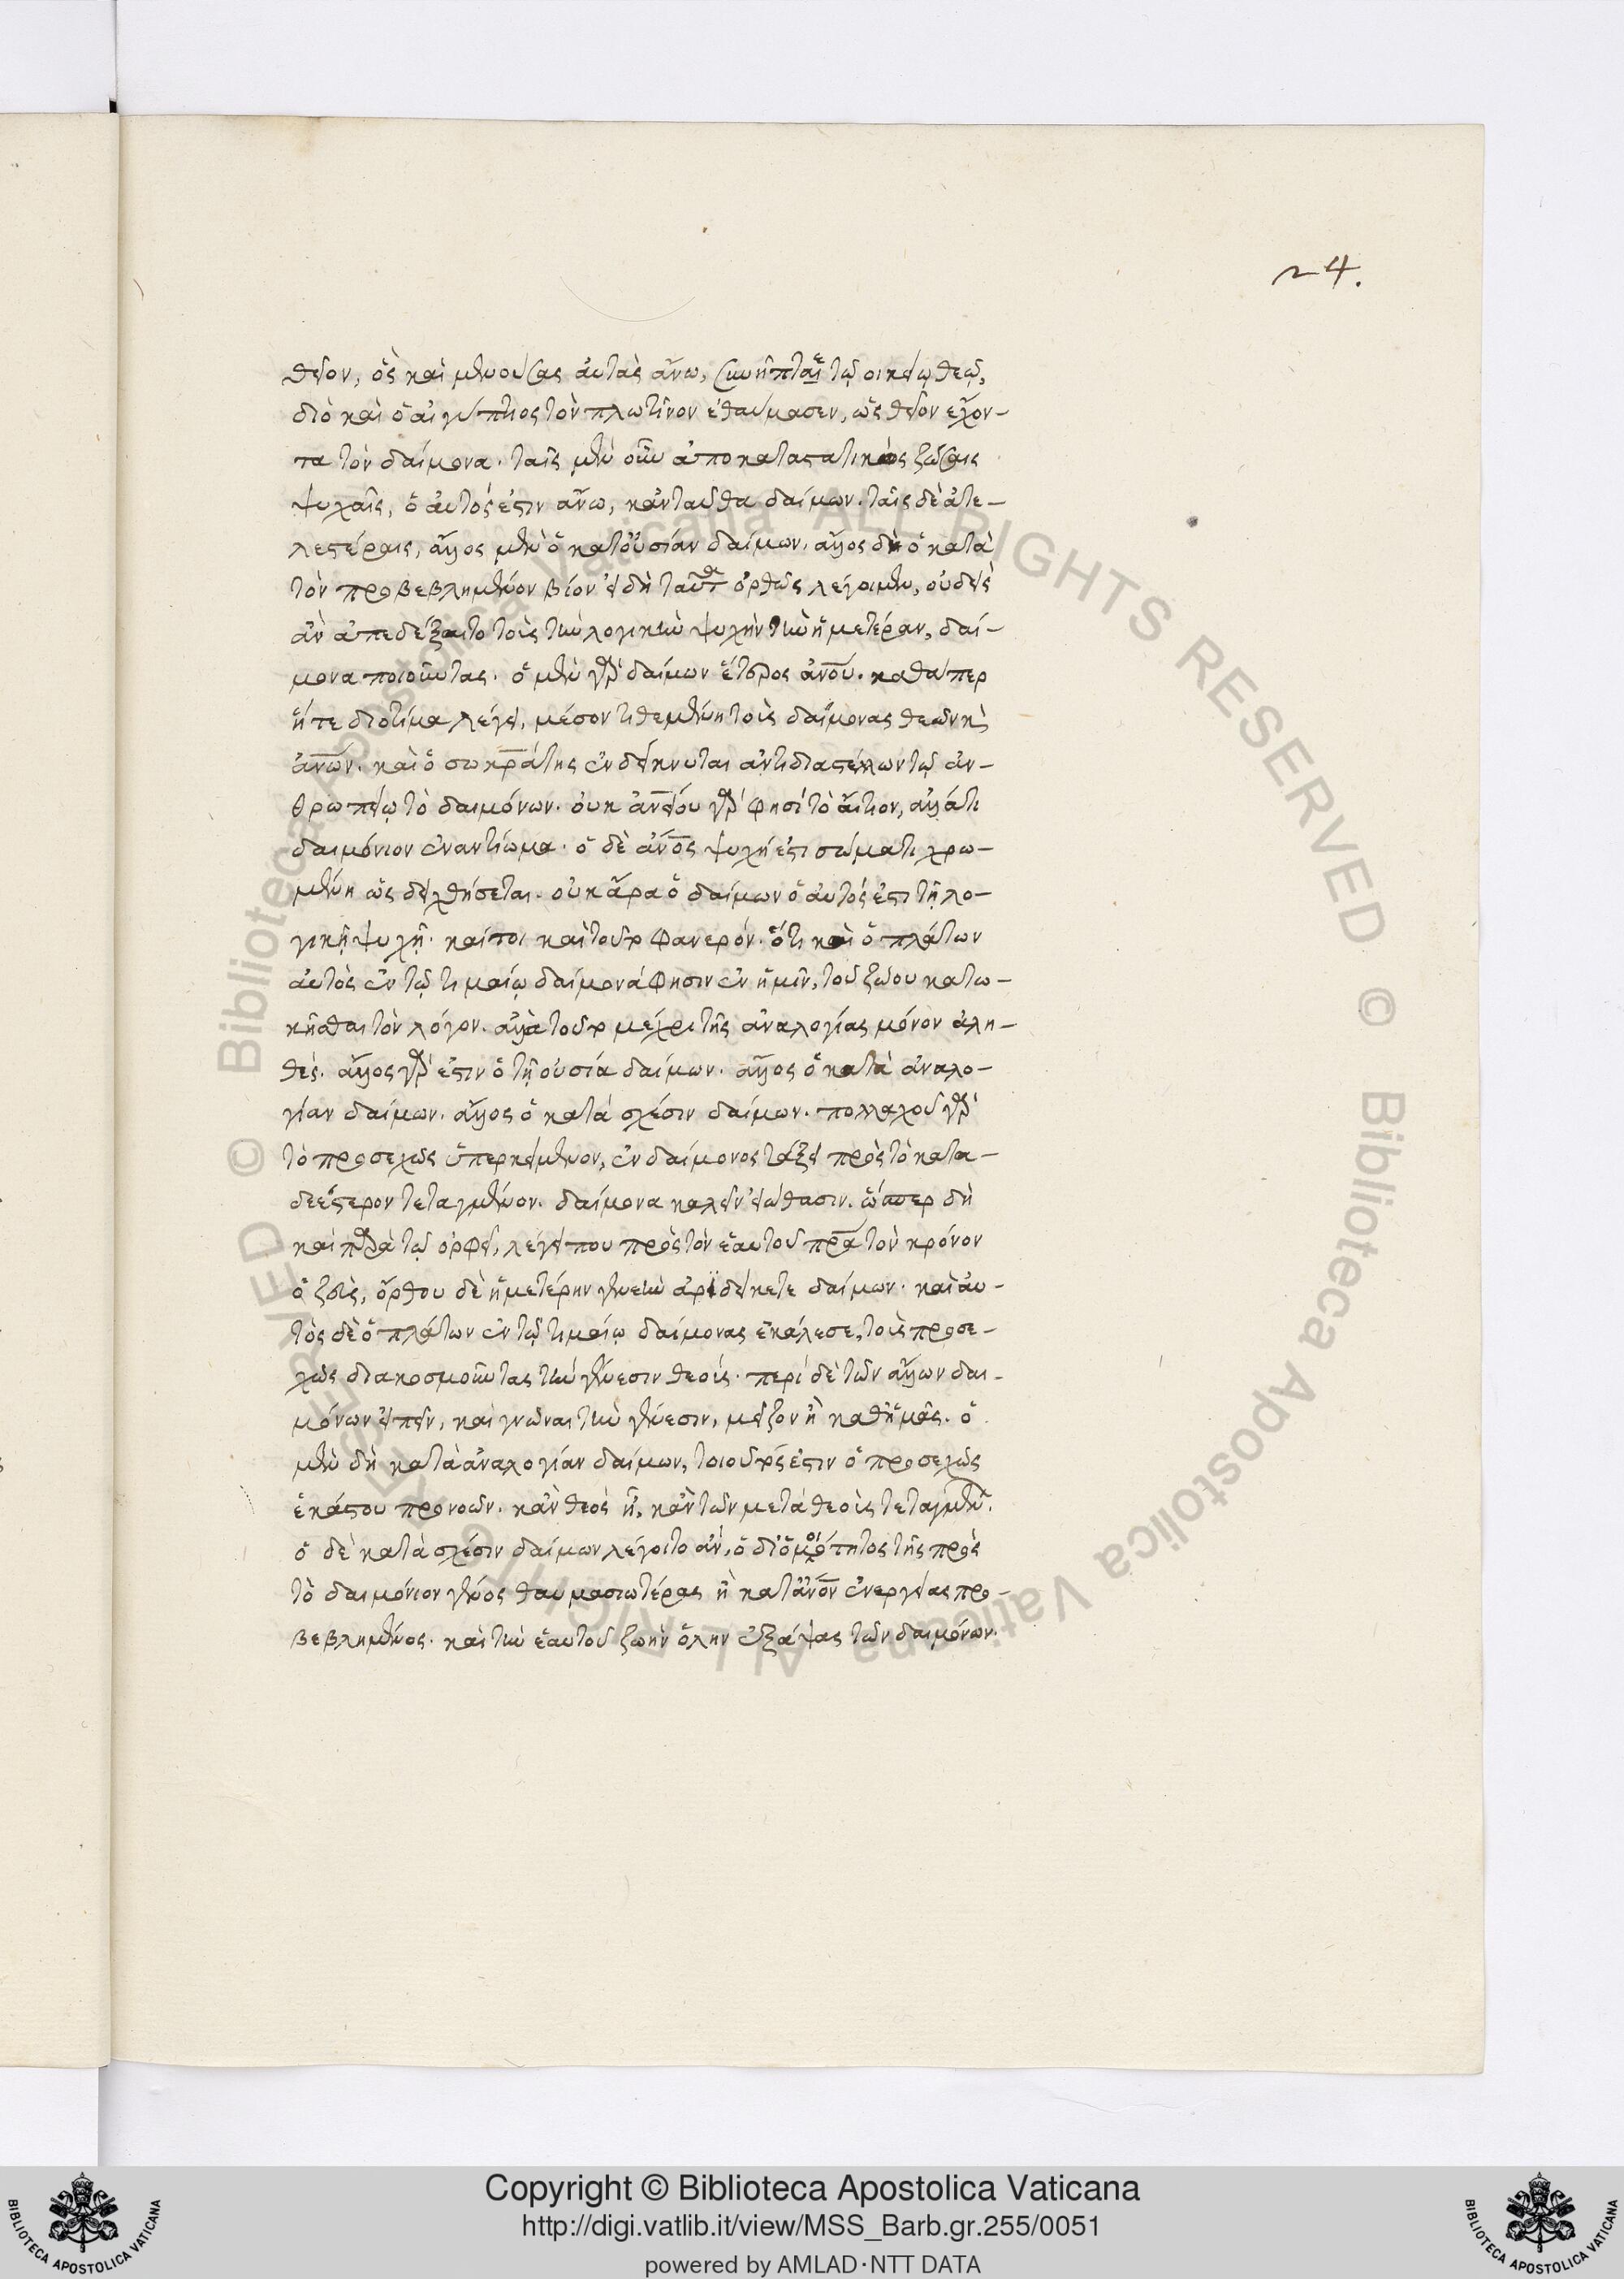 24.
θεῖον, ὃς καὶ μενούσας αὐτὰς ἄνω, συνῆπται τῷ οἰκείῳ θεῷ,
διὸ καὶ ὁ αἰγύπτιος τὸν πλωτῖνον ἐθαύμασεν, ὡς θεῖον ἔχον-
τα τὸν δαίμονα. ταῖς μὲν οὖν ἀποκαταστατικῶς ζώσαις
ψυχαῖς, ὁ αὐτός ἐστιν ἄνω, κἀνταῦθα δαίμων. ταῖς δὲ ἀτε-
λεστέραις, ἄλλος μὲν ὁ κατ' οὐσίαν δαίμων. ἄλλος δὲ ὁ κατὰ
τὸν προβεβλημένον βίον εἰ δὴ ταῦτα ὀρθῶς λέγοιμεν, οὐδεὶς
ἂν ἀποδέξαιτο τοὺς τὴν λογικὴν ψυχὴν τὴν ἡμετέραν, δαί-
μονα ποιοῦντας. ὁ μὲν γὰρ δαίμων ἕτερος ἀνου. καθάπερ
ἥ τε διοτίμα λέγει, μέσον τιθεμένη τοὺς δαίμονας θεῶν κὶ
ἀνων. καὶ ὁ σωκράτης ἐνδείκνυται ἀντιδιαστέλλων τῷ ἀν-
θρωπείῳ τὸ δαιμόνων. οὐκ ἀνείου γάρ φησὶ τὸ αἴτιον, ἀλλά τι
δαιμόνιον ἐναντίωμα. ὁ δὲ ἄνος ψυχή ἐστι σώματι χρω-
μένη ὡς δειχθήσεται. οὐκ ἄρα ὁ δαίμων ὁ αὐτός ἐστι τῇ λο-
γικῇ ψυχῇ. καίτοι καὶ τοῦτο φανερόν. ὅτι καὶ ὁ πλάτων
αὐτὸς ἐν τῷ τιμαίῳ δαίμονά φησιν ἐν ἡμῖν, τοῦ ζώου κατω-
κῆσθαι τὸν λόγον. ἀλλὰ τοῦτο μέχρι τῆς ἀναλογίας μόνον ἀλη-
θές. ἄλλος γάρ ἐστιν ὁ τῇ οὐσία δαίμων. ἄλλος ὁ κατὰ ἀναλο-
γίαν δαίμων. ἄλλος ὁ κατὰ σχέσιν δαίμων. πολλαχοῦ γὰρ
τὸ προσεχῶς ὑπερκείμενον, ἐν δαίμονος τάξει πρὸς τὸ κατα-
δεέστερον τεταγμένον. δαίμονα καλεῖν εἰώθασιν. ὥσπερ δὴ
καὶ παρὰ τῷ ὀρφεῖ, λέγει που πρὸς τὸν ἑαυτοῦ πρα τὸν κρόνον
ὁ ζεὺς, ὄρθου δὲ ἡμετέρην γενεὴν ἀριδείκετε δαίμων. καὶ αὐ-
τὸς δὲ ὁ πλάτων ἐν τῷ τιμαίῳ δαίμονας ἐκάλεσε, τοὺς προσε-
χῶς διακοσμοῦντας τὴν γένεσιν θεούς. περὶ δὲ τῶν ἄλλων δαι-
μόνων εἰπεῖν, καὶ γνῶναι τὴν γένεσιν, μεῖζον ἢ καθ' ἡμᾶς. ὁ
μὲν δὴ κατὰ ἀναλογίαν δαίμων, τοιοῦτός ἐστιν ὁ προσεχῶς
ἑκάστου προνοῶν. κἂν θεὸς ᾖ, κἂν τῶν μετὰ θεοὺς τεταγμέν.
ὁ δὲ κατὰ σχέσιν δαίμων λέγοιτο ἂν, ὁ δι' ὁμοιότητος τῆς πρὸς
τὸ δαιμόνιον γένος θαυμασιωτέρας ἢ κατ' ἄνον ἐνεργείας προ-
βεβλημένος. καὶ τὴν ἑαυτοῦ ζωὴν ὅλην ἐξάψας τῶν δαιμόνων.
© Biblioteca Apostolica Vaticana ALL RIGHTS RESERVED © Biblioteca Apostolica Vaticana ALL RIGHTS RESERVED
Copyright © Biblioteca Apostolica Vaticana
http://digi.vatlib.it/view/MSS_Barb.gr.255/0051
powered by AMLAD·NTT DATA
BIBLIOTECA APOSTOLICA VATICANA
BIBLIOTECA APOSTOLICA VATICANA